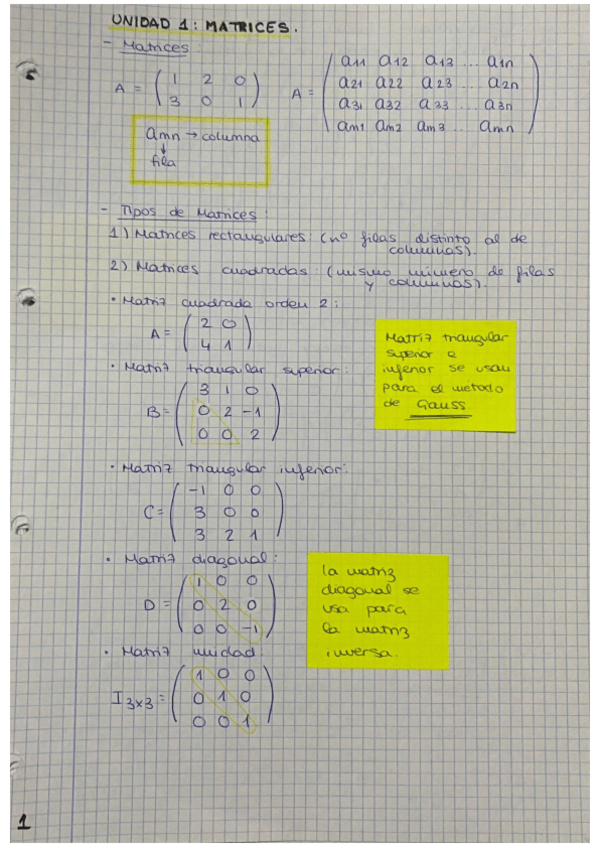 UNIDAD 1: MATRICES.
- Matrices:
A = ( 1 2 0
3 0 1 )
A = ( a11 a12 a13 ... a1n
a21 a22 a23 ... a2n
a31 a32 a33 ... a3n
am1 am2 am3 ... amn )
amn → columna
↓
fila
- Tipos de Matrices:
1) Matrices rectangulares: (nº filas distinto al de
columnas).
2) Matrices cuadradas: (mismo número de filas
y columnas).
• Matriz cuadrada orden 2:
A = ( 2 0
4 1 )
Matriz triangular
superior e
inferior se usan
para el método
de Gauss
• Matriz triangular superior:
B = ( 3 1 0
0 2 -1
0 0 2 )
• Matriz triangular inferior:
C = ( -1 0 0
3 0 0
3 2 1 )
• Matriz diagonal:
D = ( 1 0 0
0 2 0
0 0 -1 )
la matriz
diagonal se
usa para
la matriz
inversa.
• Matriz unidad:
I3x3 = ( 1 0 0
0 1 0
0 0 1 )
1